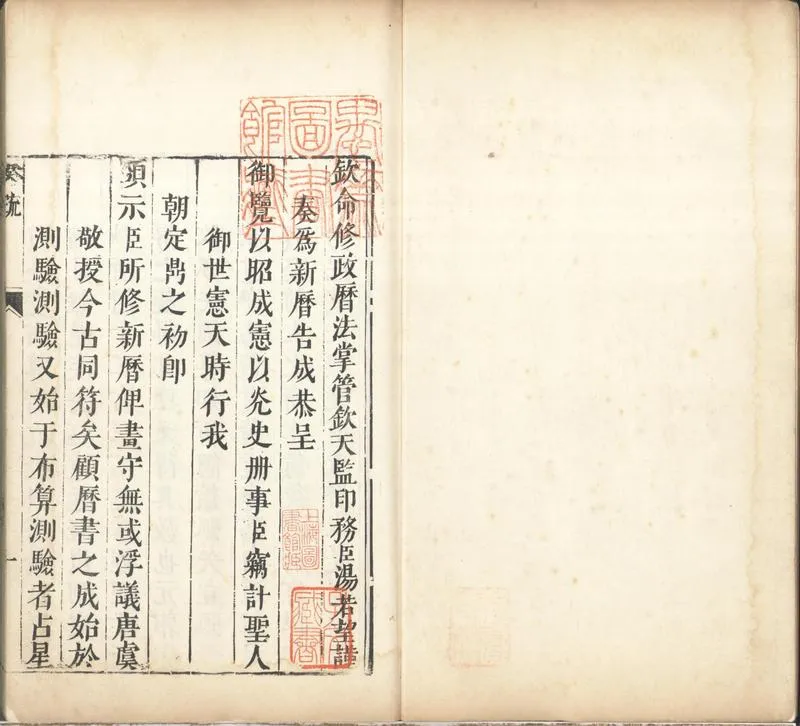 欽命修政曆法掌管欽天監印務臣湯若望謹
奏爲新曆告成恭呈
御覽以昭成憲以光史册事臣竊計聖人
御世憲天時行我
朝定鼎之初卽
須示臣所修新曆俾畫守無或浮議唐虞
敬授今古同符矣顧曆書之成始於
測驗測驗又始于布算測驗者占星
奏疏
一
上海圖書館藏